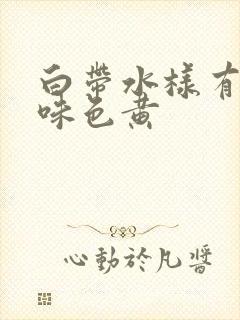 白帶水樣有
味色黃
心動於凡醬